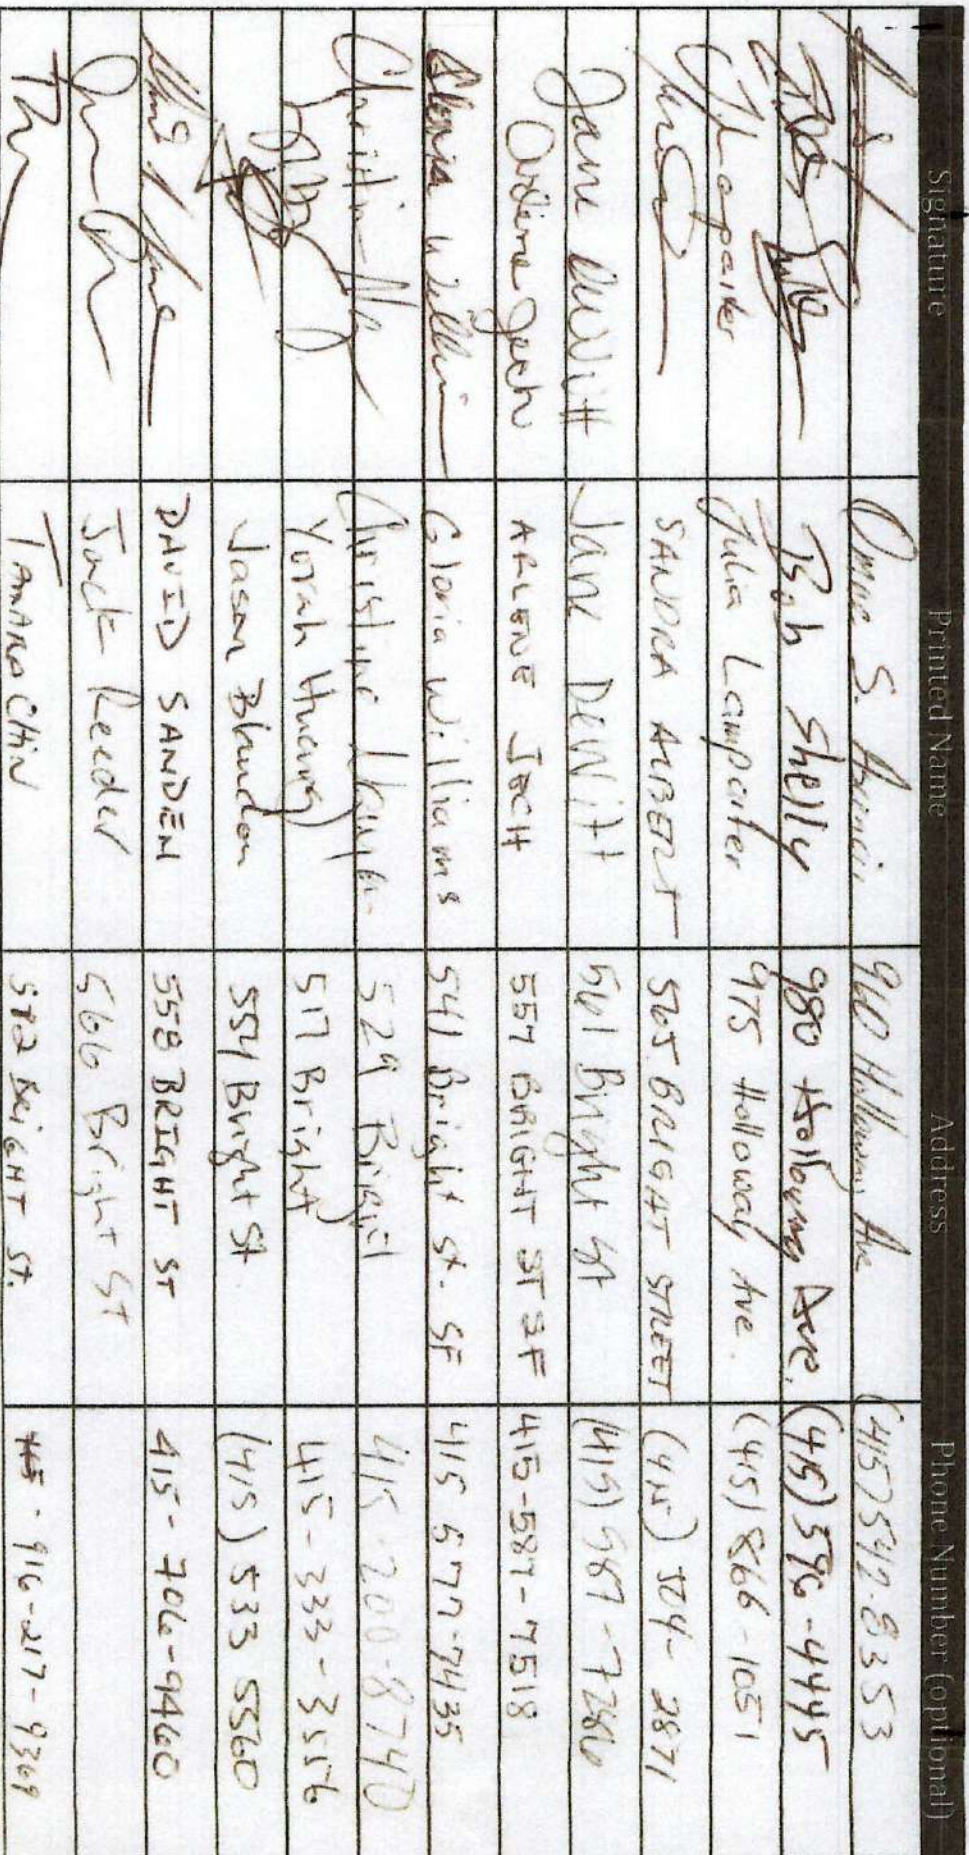 Signature Printed Name Address Phone Number (optional)
Omar S. 960 Holloway Ave (415) 592-8353
Bob Shelly 980 Holloway Ave. (415) 596-4445
JLampaiter Julia Lampaiter 975 Holloway Ave. (415) 866-1051
SANDRA ALBERT 565 BRIGHT STREET (415) 504-2871
Jane DeWitt Jane DeWitt 561 Bright St (415) 587-7286
Arlene Jech ARLENE JECH 557 BRIGHT ST SF 415-587-7518
Gloria Williams Gloria Williams 541 Bright St. SF 415 577-7435
Christine Christine 529 Bright 415-200-8740
Yorah Huang 517 Bright 415-333-3556
Jason Blundon 554 Bright St. (415) 533 5560
DAVID SANDEN 558 BRIGHT ST 415-706-9460
Jack Reeder 566 Bright St
TAMARA CHIN 572 BRIGHT ST. 916-217-9369